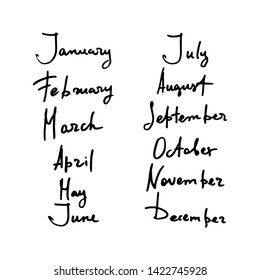 January
February
March
April
May
June
July
August
September
October
November
December
shutterstock.com · 1422745928